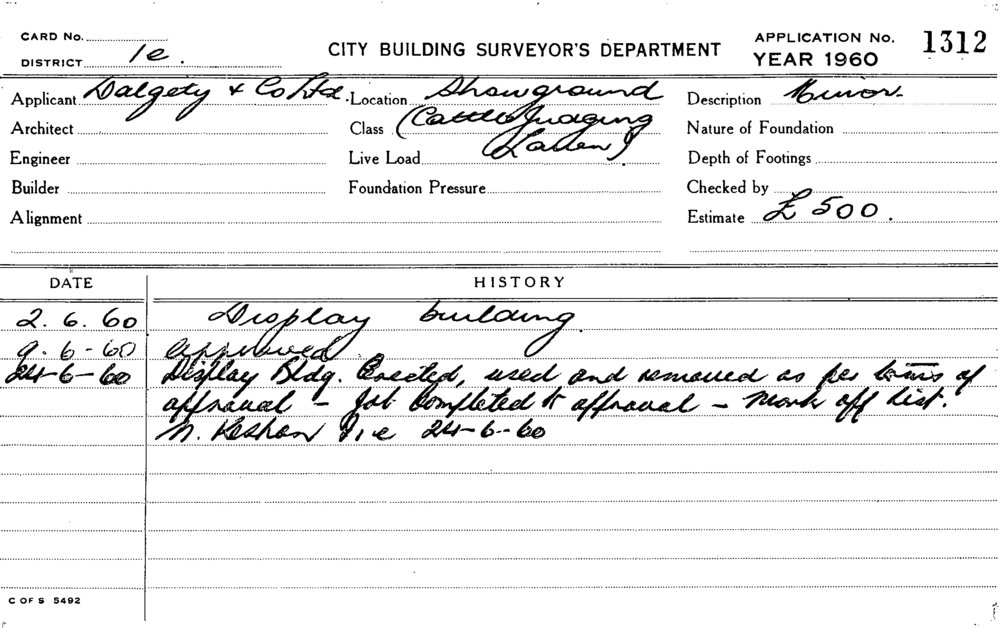 CARD No.
DISTRICT 1e.
CITY BUILDING SURVEYOR'S DEPARTMENT
APPLICATION No. 1312
YEAR 1960
Applicant Dalgety & Co Ltd. Location Showground Description Minor.
Architect Class (Cattle Judging Nature of Foundation
Engineer Live Load Lawn) Depth of Footings
Builder Foundation Pressure Checked by
Alignment Estimate £ 500.
DATE HISTORY
2. 6. 60 Display building.
9. 6 - 60 approved
24-6-60 Display Bldg. Erected, used and removed as per terms of
approval - Job Completed to approval - Mark off list.
N. 1.e 24-6-60
C OF S 5492